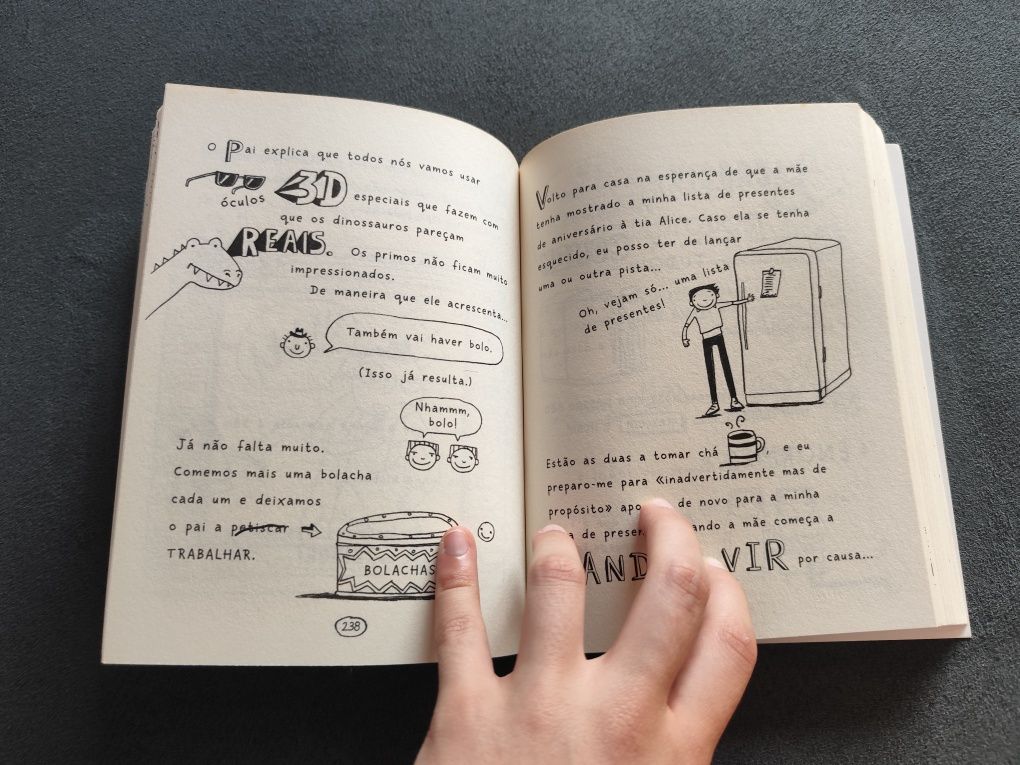 O Pai explica que todos nós vamos usar
óculos 3D especiais que fazem com
que os dinossauros pareçam
REAIS. Os primos não ficam muito
impressionados.
De maneira que ele acrescenta...
Também vai haver bolo.
(Isso já resulta.)
Nhammm,
bolo!
Já não falta muito.
Comemos mais uma bolacha
cada um e deixamos
o pai a petiscar
TRABALHAR.
BOLACHAS
238
Volto para casa na esperança de que a mãe
tenha mostrado a minha lista de presentes
de aniversário à tia Alice. Caso ela se tenha
esquecido, eu posso ter de lançar
uma ou outra pista...
Oh, vejam só... uma lista
de presentes!
Estão as duas a tomar chá, e eu
preparo-me para «inadvertidamente mas de
propósito» de novo para a minha
de a mãe começa a
VIR por causa...